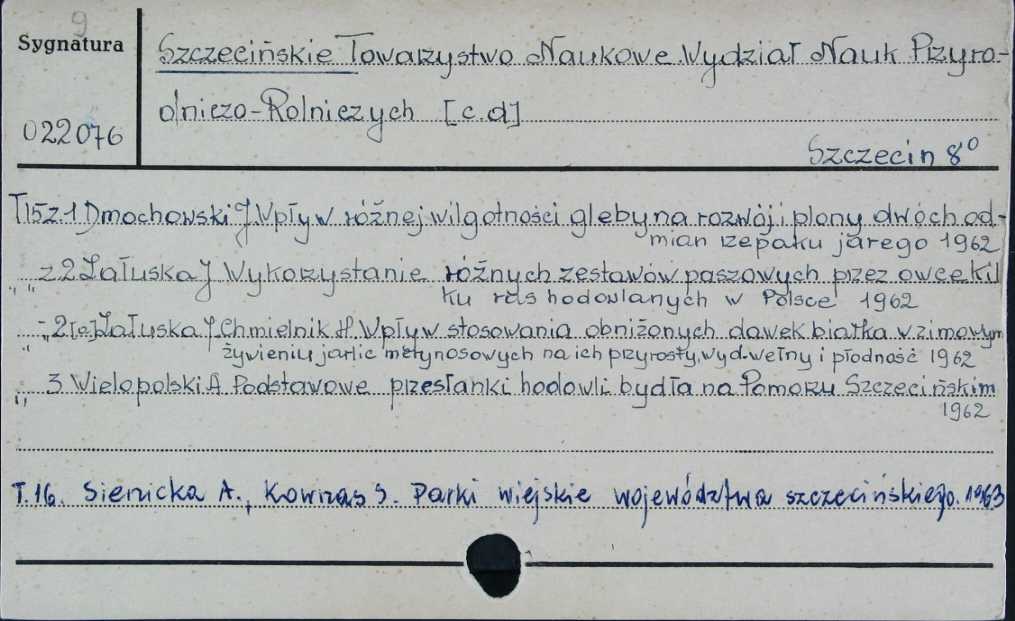 9
Sygnatura
Szczecińskie Towarzystwo Naukowe. Wydział Nauk Przyro-
dniczo-Rolniczych [c.d]
022076
Szczecin 8°
T15z.1 Dmochowski J. Wpływ różnej wilgotności gleby na rozwój i plony dwóch od-
mian rzepaku jarego 1962
" " z2 Załuska J Wykorzystanie różnych zestawów paszowych przez owce kil
ku ras hodowlanych w Polsce 1962
" - „2[a] Załuska J. Chmielnik H. Wpływ stosowania obniżonych dawek białka w zimowym
żywieniu jarlic merynosowych na ich przyrosty, wyd. wełny i płodność 1962
" " 3 Wielopolski A. Podstawowe przesłanki hodowli bydła na Pomorzu Szczecińskim
1962
T.16. Sienicka A., Kownas S. Parki wiejskie województwa szczecińskiego. 1963